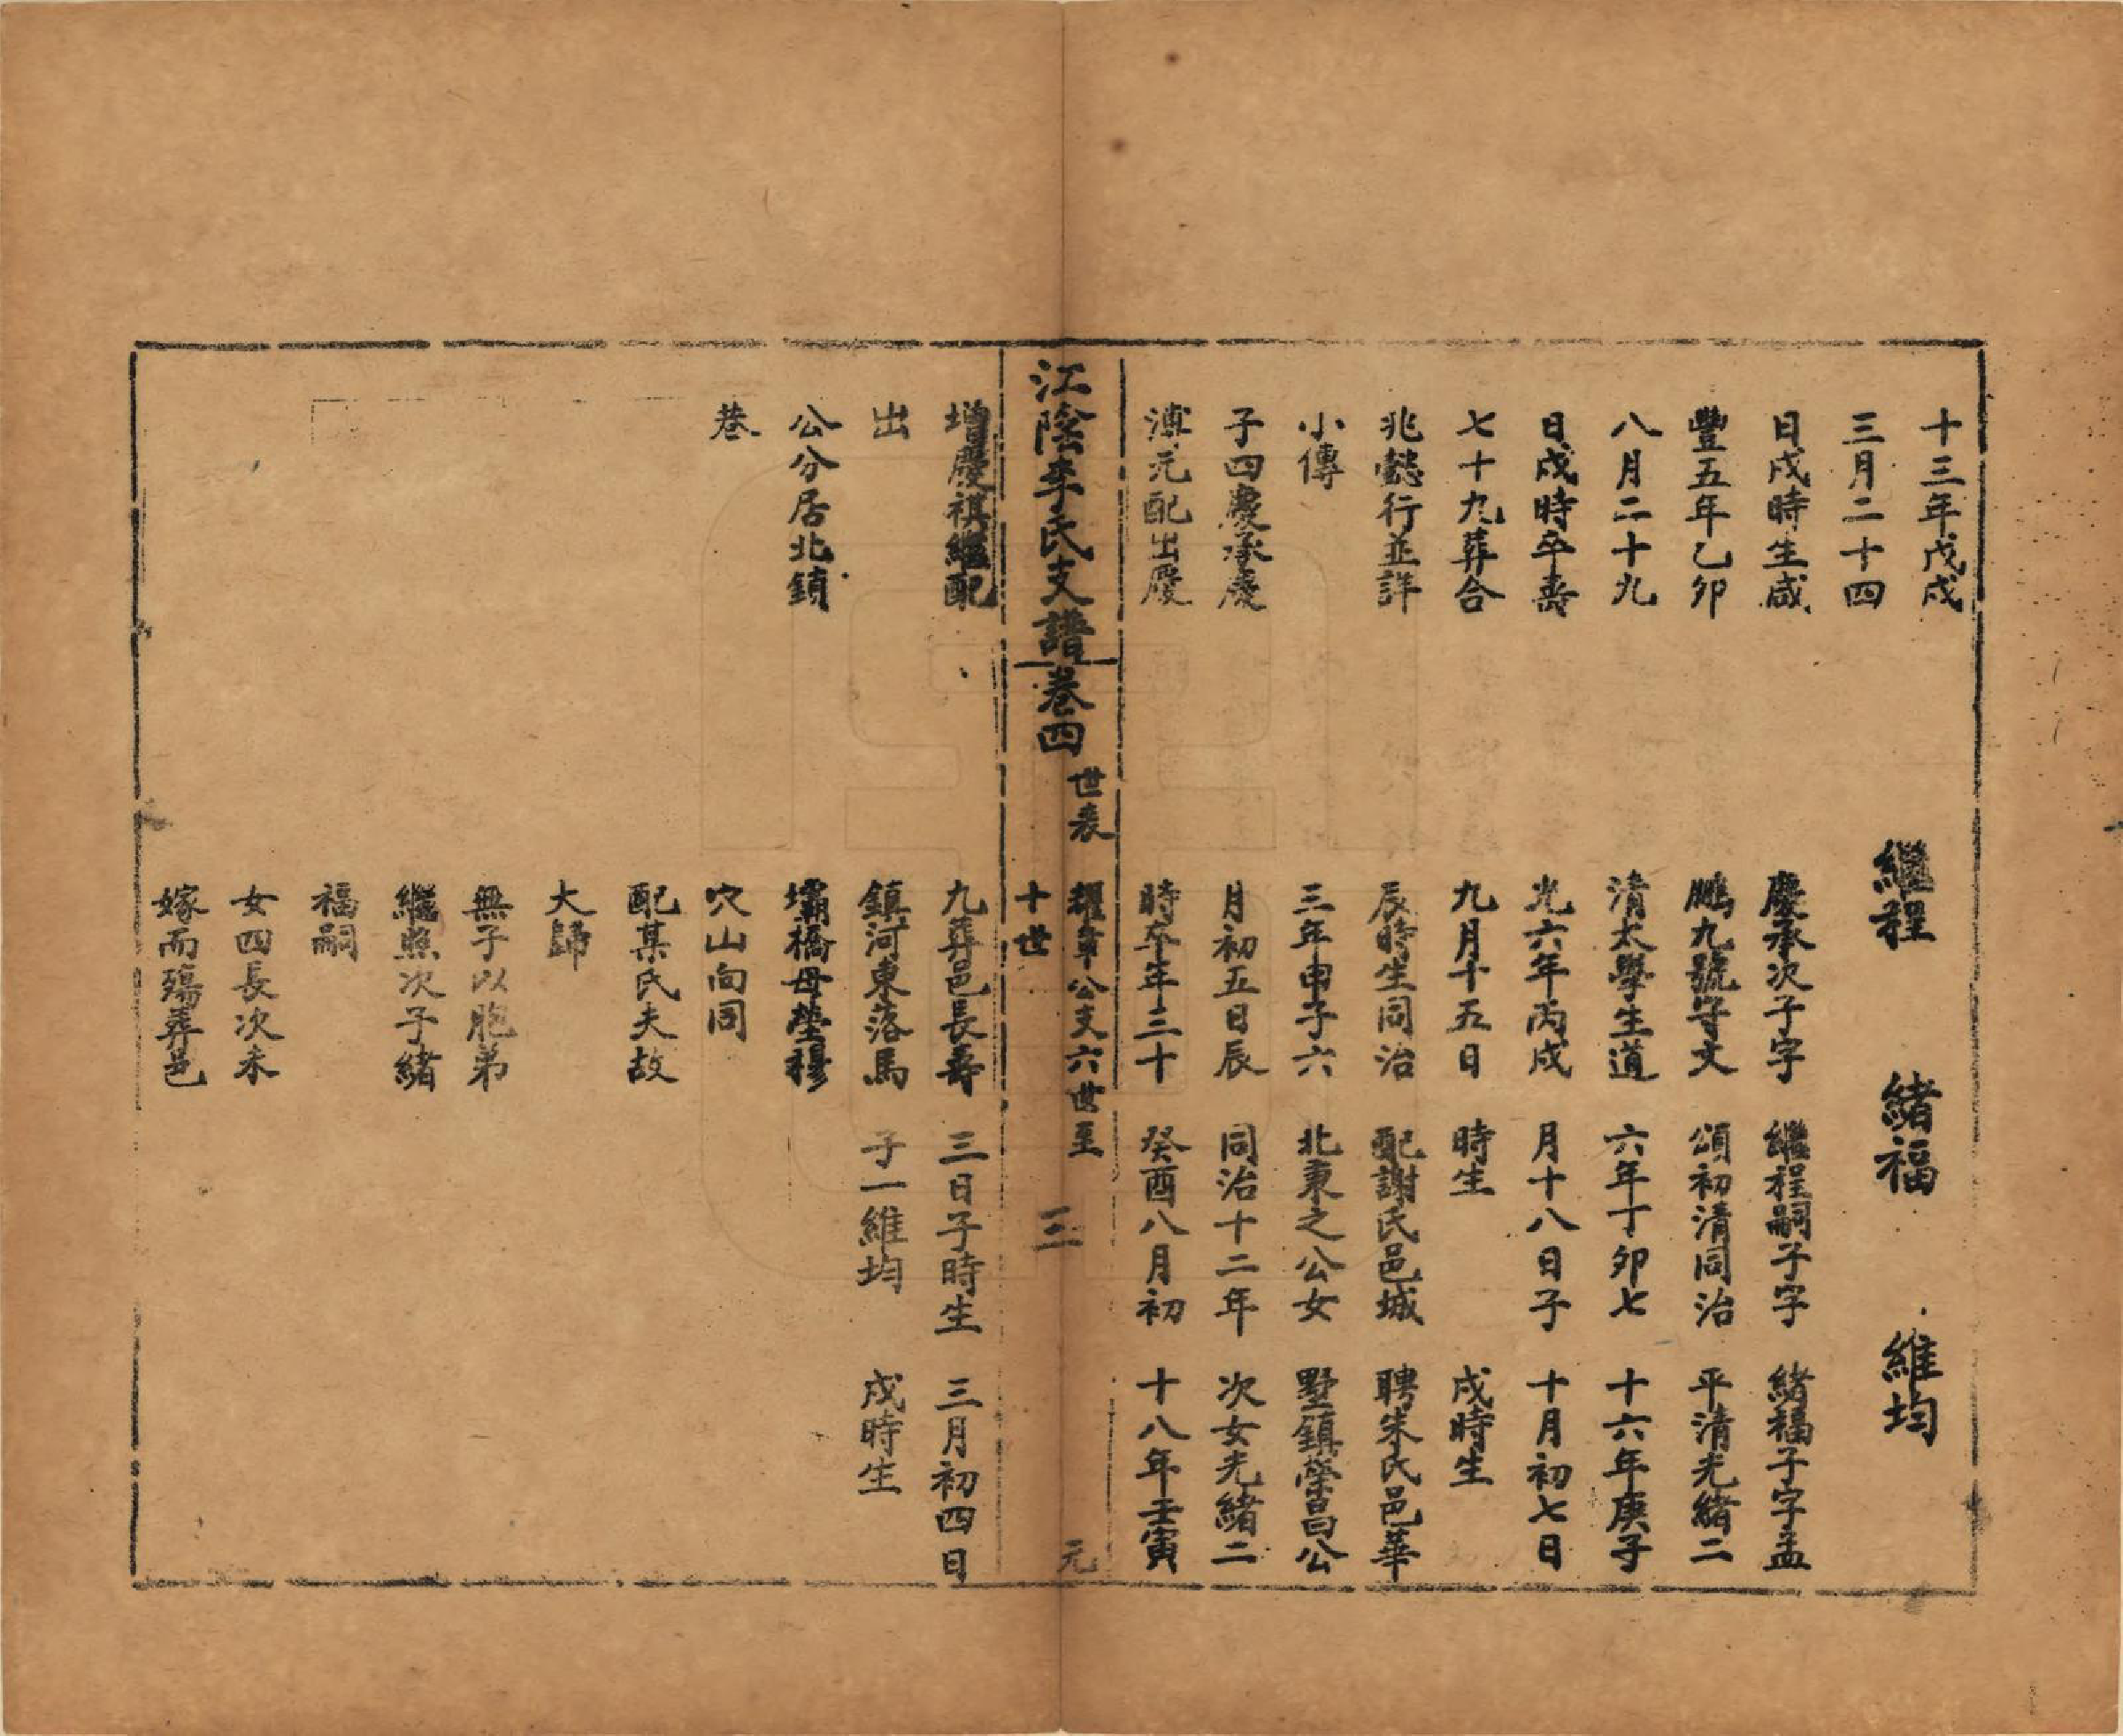 十三年戊戌
三月二十四
日戌時生咸
豐五年乙卯
八月二十九
日戌時卒壽
七十九葬合
兆懿行並詳
小傳
子四慶承慶
溥元配出慶
繼程
慶承次子字
鵬九號守文
清太學生道
光六年丙戌
九月十五日
辰時生同治
三年甲子六
月初五日辰
時卒年三十
緒福
繼程嗣子字
頌初清同治
六年丁卯七
月十八日子
時生
配謝氏邑城
北秉之公女
同治十二年
癸酉八月初
維均
緒福子字孟
平清光緒二
十六年庚子
十月初七日
戌時生
聘朱氏邑華
墅鎮榮昌公
次女光緒二
十八年壬寅
江陰李氏支譜
卷四
世表
耀章公支六世至
十世
三
元
增慶祺繼配
出
公分居北鎮
巷
九葬邑長壽
鎮河東落馬
壩橋母塋穆
穴山向同
配某氏夫故
大歸
無子以胞弟
繼照次子緒
福嗣
女四長次未
嫁而殤葬邑
三日子時生
子一維均
三月初四日
戌時生